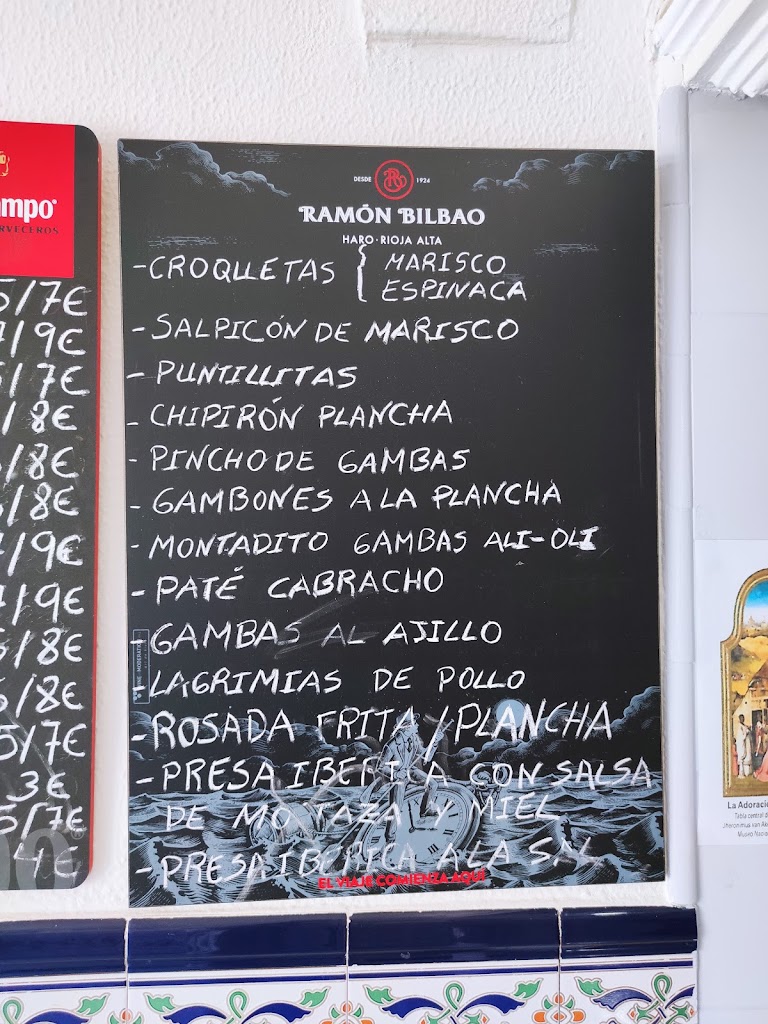 mpo
RVECEROS
5/7€
/9€
/7€
/8€
/8€
/8€
/9€
/9€
/8€
/8€
5/7€
3€
5/7€
4€
DESDE 1924
RAMÓN BILBAO
HARO · RIOJA ALTA
-CROQUETAS { MARISCO
ESPINACA
-SALPICÓN DE MARISCO
-PUNTILLITAS
-CHIPIRÓN PLANCHA
-PINCHO DE GAMBAS
-GAMBONES A LA PLANCHA
-MONTADITO GAMBAS ALI-OLI
-PATÉ CABRACHO
-GAMBAS AL AJILLO
-LAGRIMIAS DE POLLO
-ROSADA FRITA/PLANCHA
-PRESA IBERICA CON SALSA
DE MOSTAZA Y MIEL
-PRESA IBERICA A LA SAL
EL VIAJE COMIENZA AQUÍ
La Adoració
Tabla central d
Museo Nacio